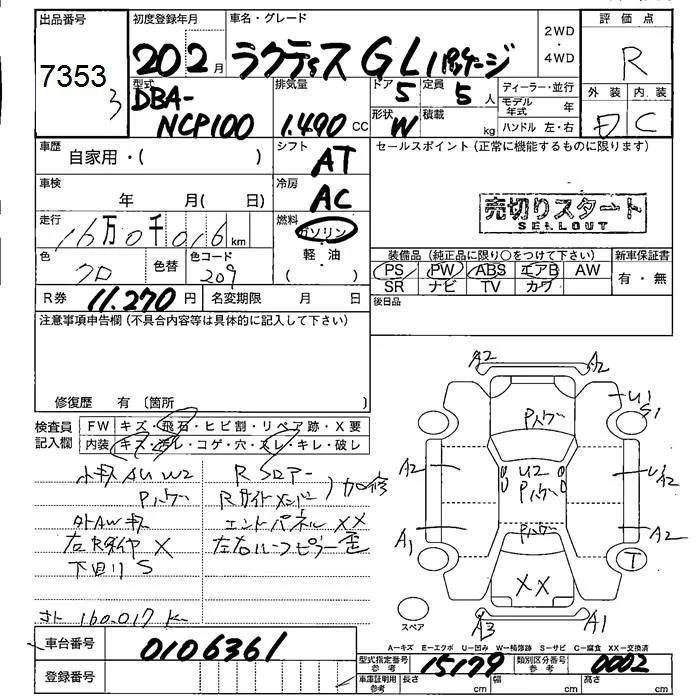 出品番号
7353
3
初度登録年月
20 2 月
車名・グレード
ラクティス G Lパッケージ
2WD
・
4WD
評価点
R
外装 内装
C
型式
DBA-
NCP100
排気量
1.490 CC
ドア 5
定員 5 人
形状 W
積載 kg
ディーラー・並行
モデル年式 年
ハンドル 左・右
車歴
自家用・( )
シフト
AT
セールスポイント (正常に機能するものに限ります)
売切りスタート
SELLOUT
車検
年 月( 日)
冷房
AC
走行
16万0千016 km
燃料
ガソリン
軽・油
( )
色
クロ
色替
色コード
209
装備品 (純正品に限り○をつけて下さい)
PS PW ABS エアB AW
SR ナビ TV カワ
新車保証書
有・無
後日品
R券 11.270 円
名変期限 月 日
注意事項申告欄 (不具合内容等は具体的に記入して下さい)
修復歴 有 〔箇所
検査員
記入欄
FW キズ・飛石・ヒビ割・リペア跡・X要
内装 キズ・汚レ・コゲ・穴・スレ・キレ・破レ
小キズ AU W2
Pハゲー
外AWキズ
左Rタイヤ X
下回り S
Rフロアー
Rサイドメンバー
加修
エンドパネル XX
左右ルーフピラー 歪
メーター 160.017 K
A2 A2
Pハゲー
U1
S1
A2
U2
Pハゲー
A2
A1
Pハゲー
A2
T
XX
スペア
A3 A1
A-キズ E-エクボ U-凹み W-補修跡 S-サビ C-腐食 XX-交換済
車台番号
0106361
登録番号
型式指定番号
参考
15179
類別区分番号
参考
0002
車庫証明用
参考
長さ cm
幅 cm
高さ cm